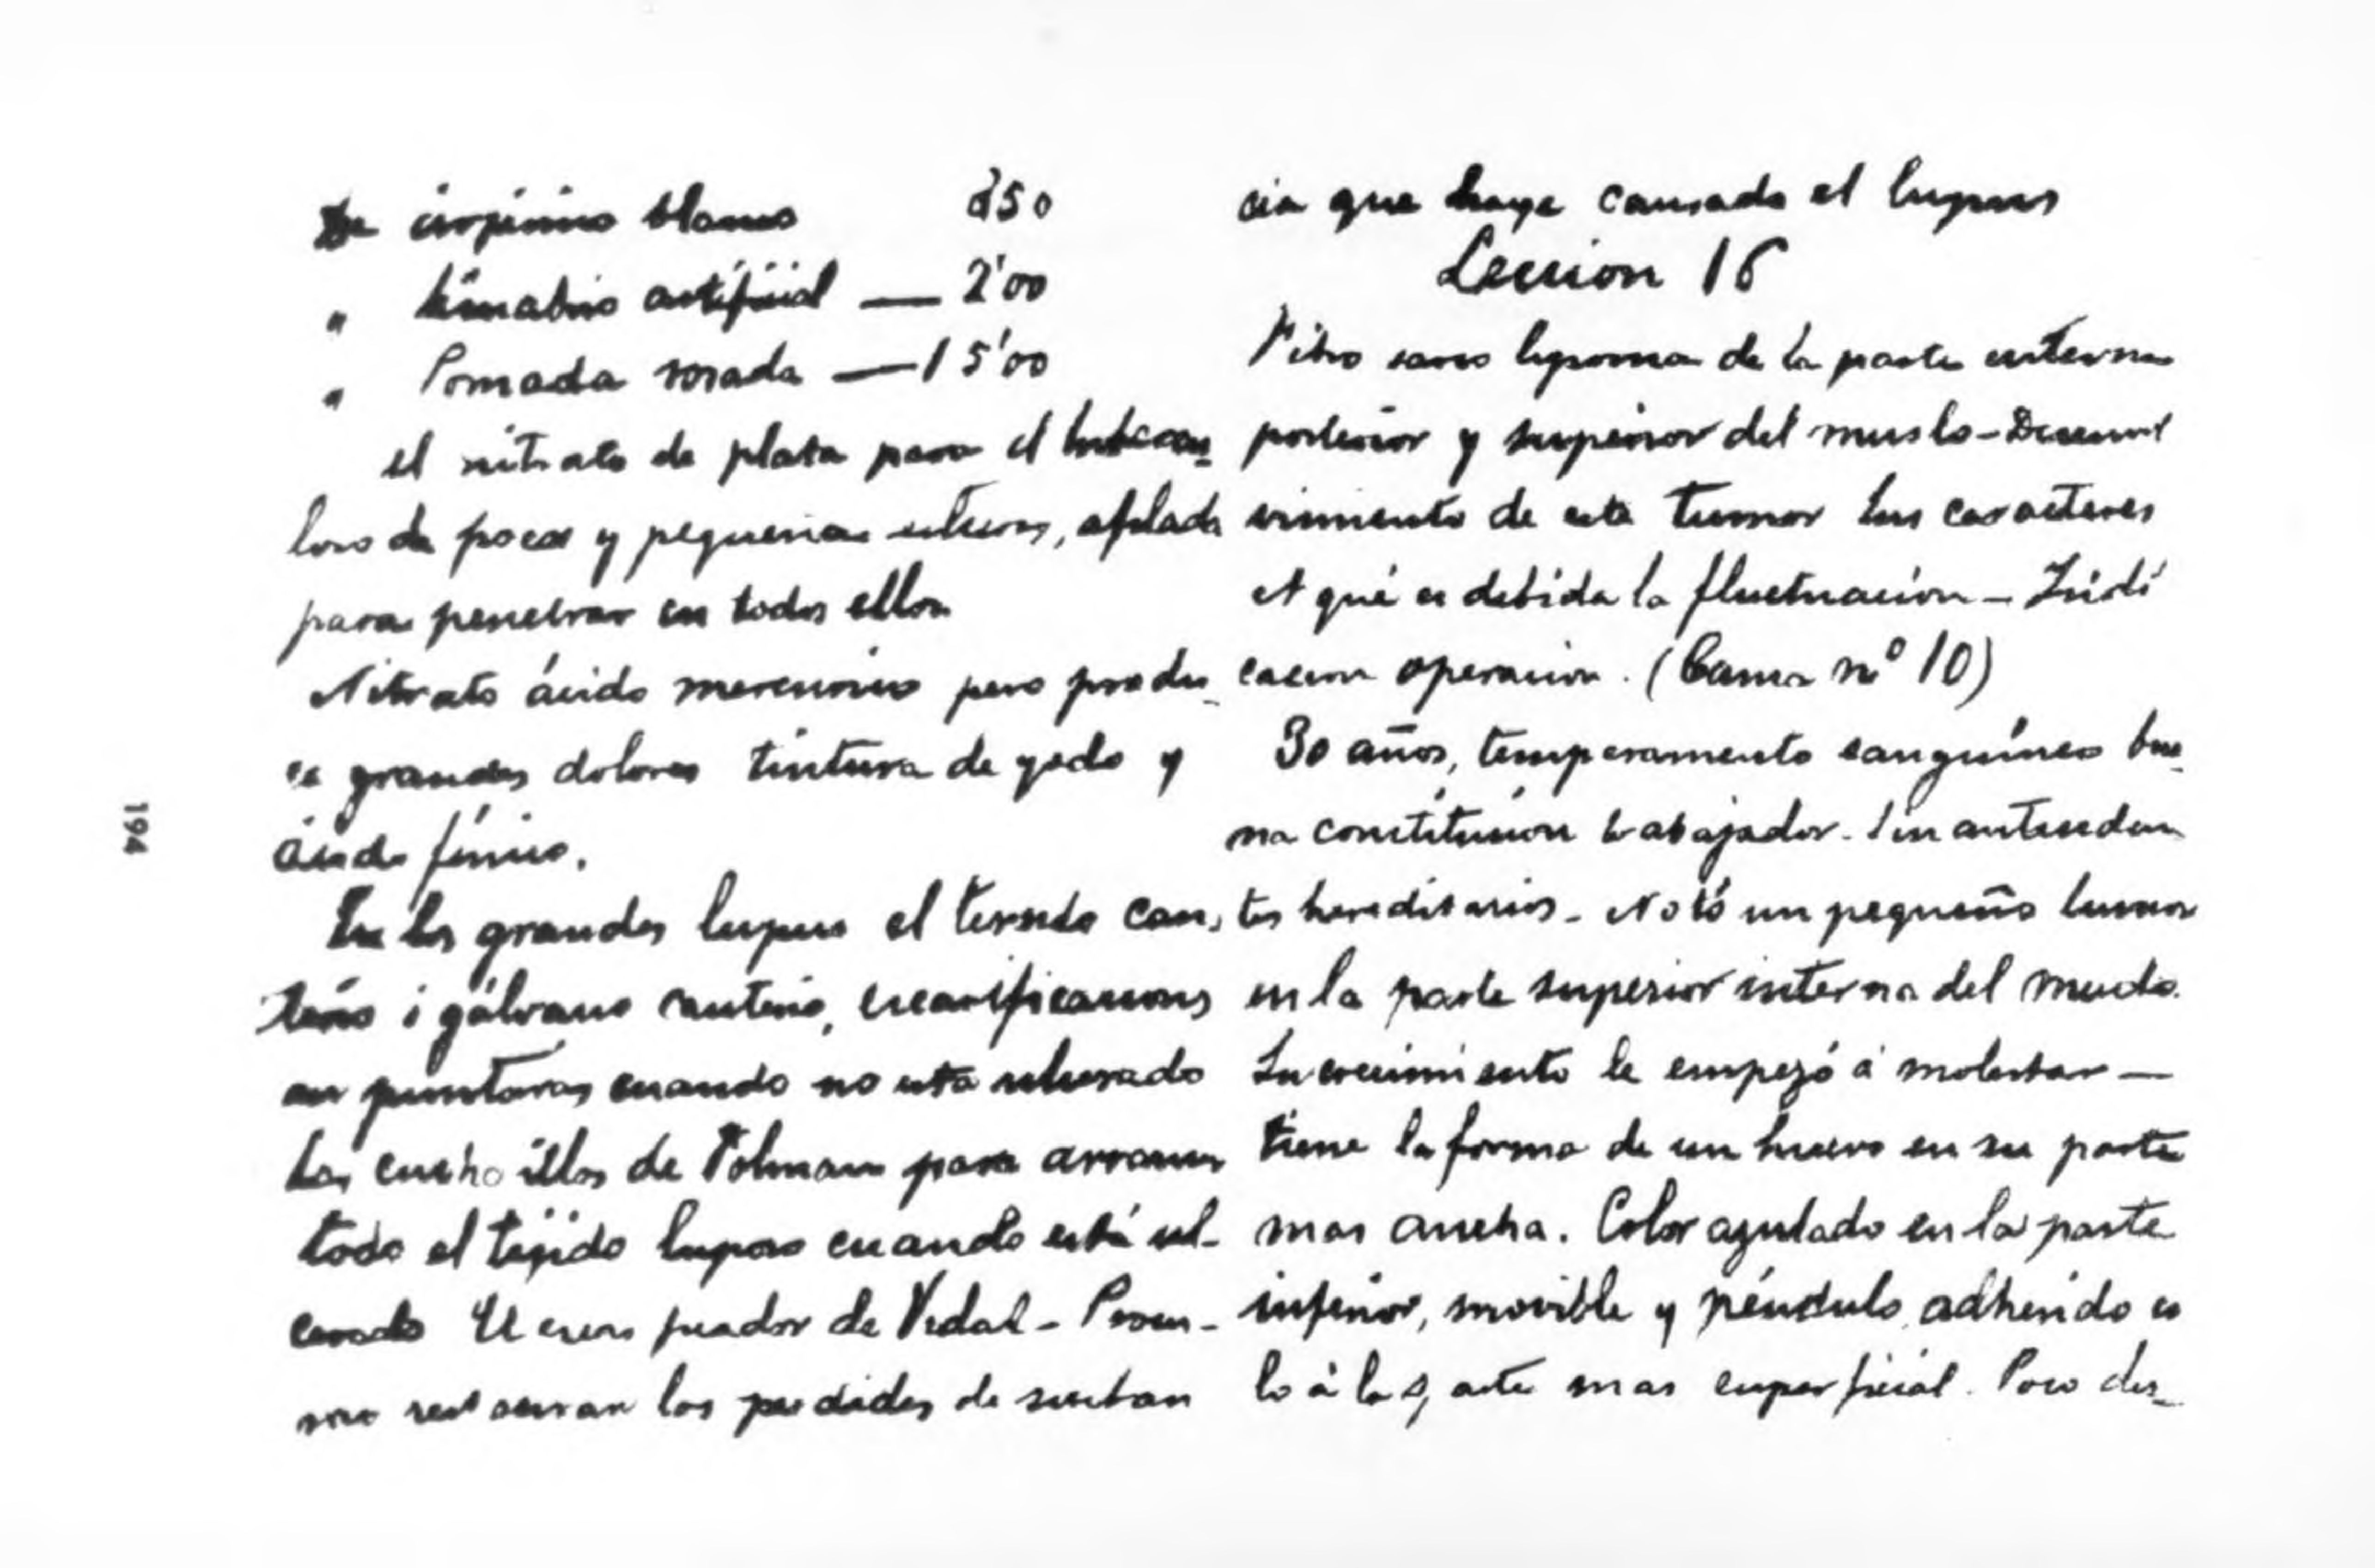 De blanco 250
„ artificial — 2'00
„ Pomada rosada — 15'00
el nitrato de plata para el
loso de pocas y pequeñas ulceras, afilada
para penetrar en todos ellos
Nitrato ácido mercurico pero produ-
ce grandes dolores tintura de yodo y
Ácido fénico.
En los grandes lupus el termo cau-
terio i gálvano cauterio, escarificaciones
en punturas cuando no esta ulcerado
Las cuchoillas de Volman para arrancar
todo el tejido luposo cuando está ul-
cerado El de Vidal -
restauran las perdidas de sustan
194
cia que haya causado el lupus
Leccion 16
Fibro sarco lipoma de la parte interna
posterior y superior del muslo - Desenvol
vimiento de este tumor sus caracteres
A qué es debida la fluctuación - Indi
cacion operacion. (Cama nº 10)
30 años, temperamento sanguíneo bue-
na constitución trabajador. Sin anteceden
tes hereditarios - Notó un pequeño tumor
en la parte superior interna del muslo.
Su crecimiento le empezó á molestar —
tiene la forma de un huevo en su parte
mas ancha. Color azulado en la parte
inferior, movible y péndulo, adherido so
lo á la parte mas superficial. Poco des-